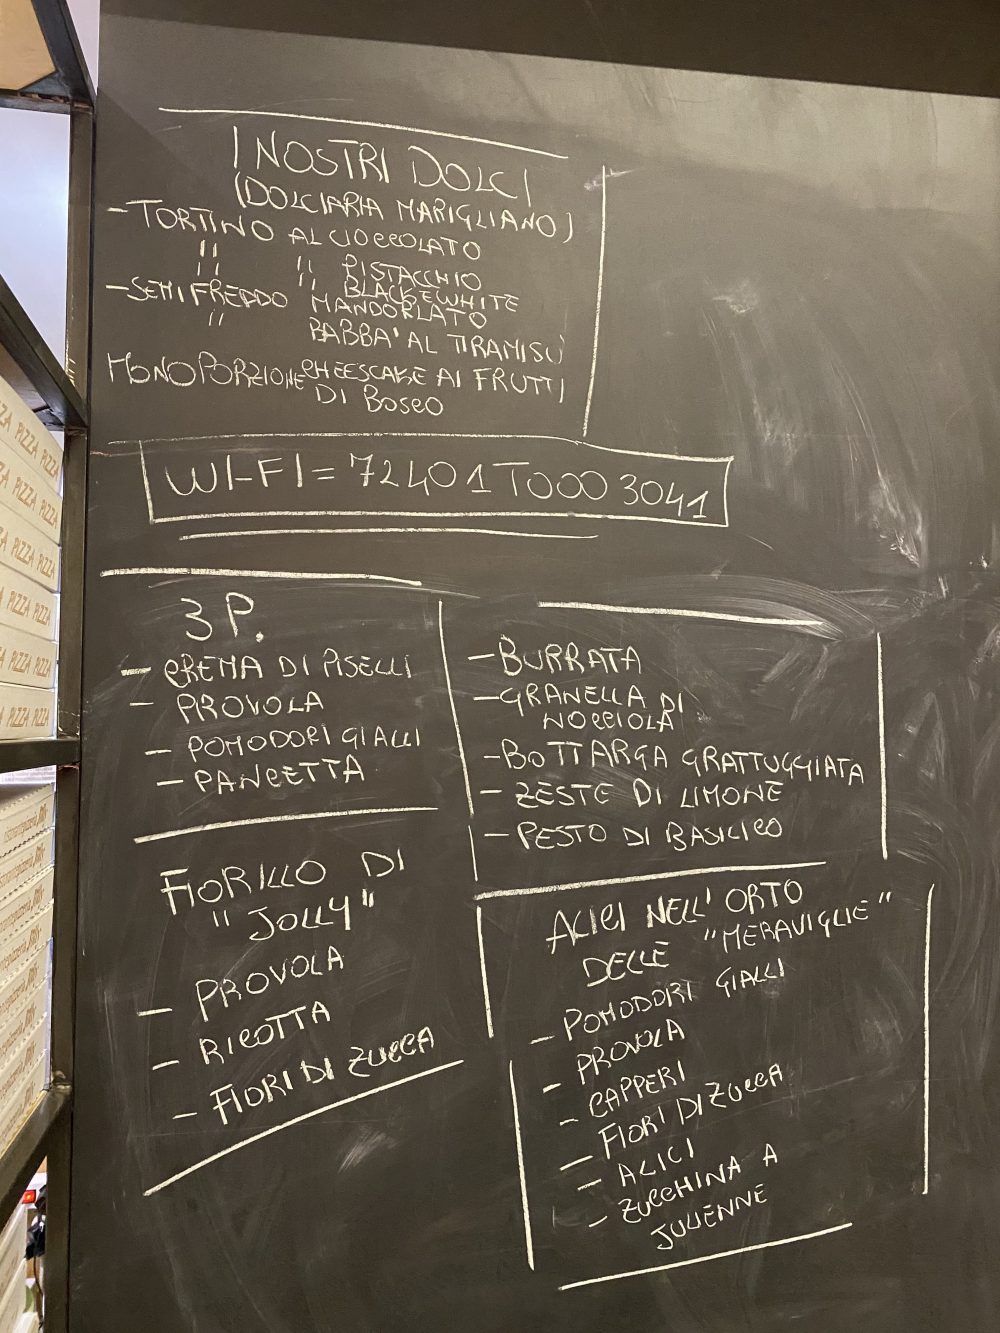 I NOSTRI DOLCI
(DOLCIARIA MARIGLIANO)
- TORTINO AL CIOCCOLATO
" " PISTACCHIO
" " BLACK E WHITE
- SEMIFREDDO MANDORLATO
" BABBA' AL TIRAMISÙ
MONOPORZIONE CHEESCAKE AI FRUTTI
DI BOSCO
WI-FI = 72401T0003041
3 P.
- CREMA DI PISELLI
- PROVOLA
- POMODORI GIALLI
- PANCETTA
- BURRATA
- GRANELLA DI
NOCCIOLA
- BOTTARGA GRATTUGGIATA
- ZESTE DI LIMONE
- PESTO DI BASILICO
FIORILLO DI
"JOLLY"
- PROVOLA
- RICOTTA
- FIORI DI ZUCCA
ALICI NELL' ORTO
DELLE "MERAVIGLIE"
- POMODORI GIALLI
- PROVOLA
- CAPPERI
- FIORI DI ZUCCA
- ALICI
- ZUCCHINA A
JULIENNE
PIZZA PIZZA
PIZZA PIZZA
PIZZA PIZZA
PIZZA PIZZA
PIZZA PIZZA
PIZZA PIZZA